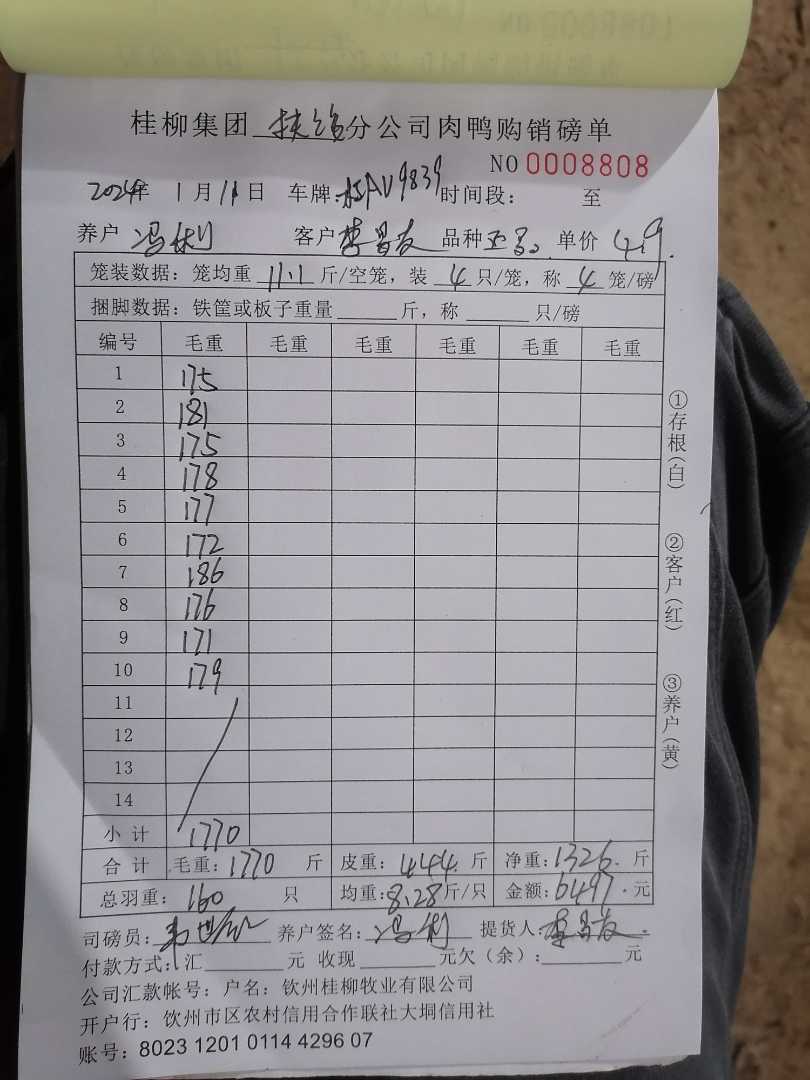 桂柳集团 扶绥 分公司肉鸭购销磅单
NO 0008808
2024年 1月11日 车牌: 9839 时间段: 至
养户 冯利 客户 李昌友 品种 单价 4.9.
笼装数据: 笼均重 11.1 斤/空笼, 装 4 只/笼, 称 4 笼/磅
捆脚数据: 铁筐或板子重量 斤, 称 只/磅
编号 毛重 毛重 毛重 毛重 毛重 毛重
1 175
2 181
3 175
4 178
5 177
6 172
7 186
8 176
9 171
10 179
11
12
13
14
小计 1770
合计 毛重: 1770 斤 皮重: 444. 斤 净重: 1326. 斤
总羽重: 160 只 均重: 8.28 斤/只 金额: 6497. 元
司磅员: 养户签名: 冯利 提货人: 李昌友.
付款方式: 汇 元 收现 元欠(余): 元
公司汇款帐号: 户名: 钦州桂柳牧业有限公司
开户行: 饮州市区农村信用合作联社大垌信用社
账号: 8023 1201 0114 4296 07
①存根(白)
②客户(红)
③养户(黄)